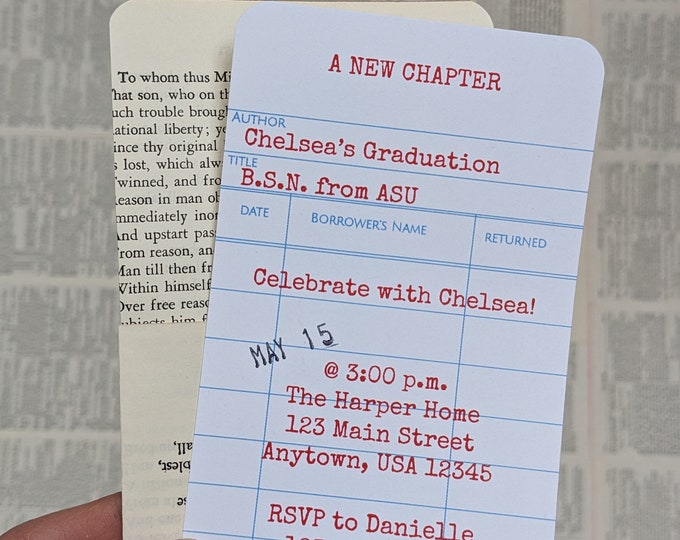 To whom thus Mi
hat son, who on th
uch trouble broug
ational liberty; ye
ince thy original
s lost, which alw
winned, and fro
eason in man ob
mmediately inor
nd upstart pass
rom reason, an
Man till then fr
Within himself
Over free reaso
A NEW CHAPTER
AUTHOR
Chelsea's Graduation
TITLE
B.S.N. from ASU
DATE BORROWER'S NAME RETURNED
Celebrate with Chelsea!
MAY 15
@ 3:00 p.m.
The Harper Home
123 Main Street
Anytown, USA 12345
RSVP to Danielle